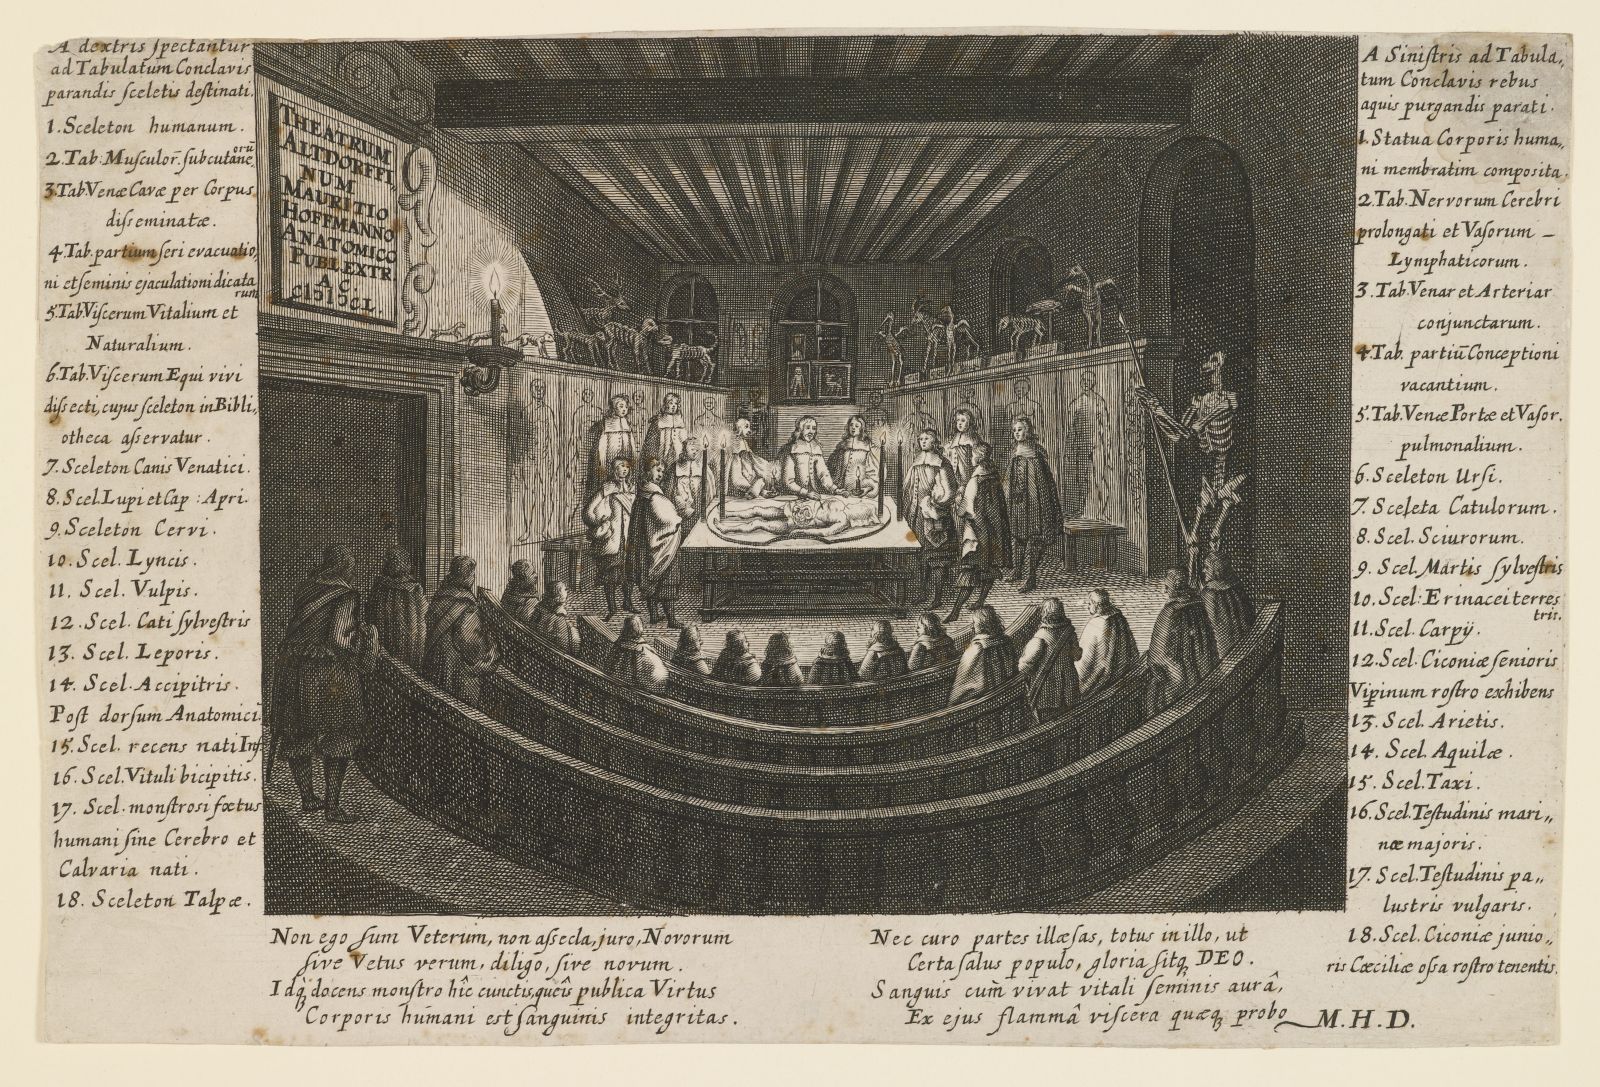 A dextris spectantur
ad Tabulatum Conclavis
parandis sceletis destinati.
1. Sceleton humanum.
2. Tab: Musculor̄. subcutaneorū
3. Tab Venæ Cavæ per Corpus
disseminatæ.
4. Tab. partium seri evacuatio,
ni et seminis ejaculationi dicatarum
5. Tab Viscerum Vitalium et
Naturalium.
6. Tab. Viscerum Equi vivi
dissecti, cujus sceleton in Bibli,
otheca asservatur.
7. Sceleton Canis Venatici.
8. Scel. Lupi et Cap: Apri.
9. Sceleton Cervi.
10. Scel. Lyncis.
11. Scel. Vulpis.
12. Scel. Cati sylvestris
13. Scel. Leporis.
14. Scel. Accipitris.
Post dorsum Anatomici
15. Scel. recens nati Inf
16. Scel. Vituli bicipitis.
17. Scel. monstrosi fœtus
humani sine Cerebro et
Calvaria nati.
18. Sceleton Talpæ.
THEATRUM
ALTDORFFI,
NUM
MAURITIO
HOFFMANNO
ANATOMICO
PUBL EXTR.
A C.
CIƆIƆCL.
A Sinistris ad Tabula,
tum Conclavis rebus
aquis purgandis parati.
1. Statua Corporis huma,,
ni membratim composita.
2. Tab. Nervorum Cerebri
prolongati et Vasorum –
Lymphaticorum.
3. Tab Venar et Arteriar
conjunctarum.
4. Tab. partiū Conceptioni
vacantium.
5. Tab. Venæ Portæ et Vasor.
pulmonalium.
6. Sceleton Ursi.
7. Sceleta Catulorum.
8. Scel. Sciurorum.
9. Scel. Martis sylvestris
10. Scel: Erinacei terrestris.
11. Scel. Carpÿ.
12. Scel. Ciconiæ senioris
Vipinum rostro exhibens
13. Scel. Arietis.
14. Scel. Aquilæ.
15. Scel. Taxi.
16. Scel. Testudinis mari,,
næ majoris.
17. Scel. Testudinis pa,,
lustris vulgaris.
18. Scel. Ciconiæ junio,,
ris Cæciliæ ossa rostro tenentis.
Non ego sum Veterum, non assecla, juro, Novorum
sive Vetus verum, diligo, sive novum.
Idq̨ docens monstro hîc cunctis, queîs publica Virtus
Corporis humani est sanguinis integritas.
Nec curo partes illæsas, totus in illo, ut
Certa salus populo, gloria sitq̨ DEO.
Sanguis cum̄ vivat vitali seminis aurâ,
Ex ejus flammâ viscera quæq̨ probo
M.H.D.